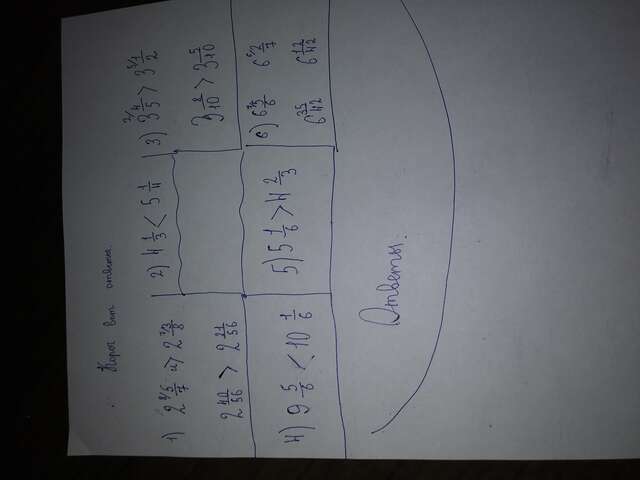 Короч вот ответы.
1) 2 5/7 > 2 3/8
2 40/56 > 2 21/56
2) 4 1/3 < 5 1/4
3) 3 4/5 > 3 1/2
3 8/10 > 3 5/10
4) 9 5/6 < 10 1/6
5) 5 1/6 > 4 2/3
6) 6 5/6 6 2/7
6 35/42 6 12/42
Ответы.